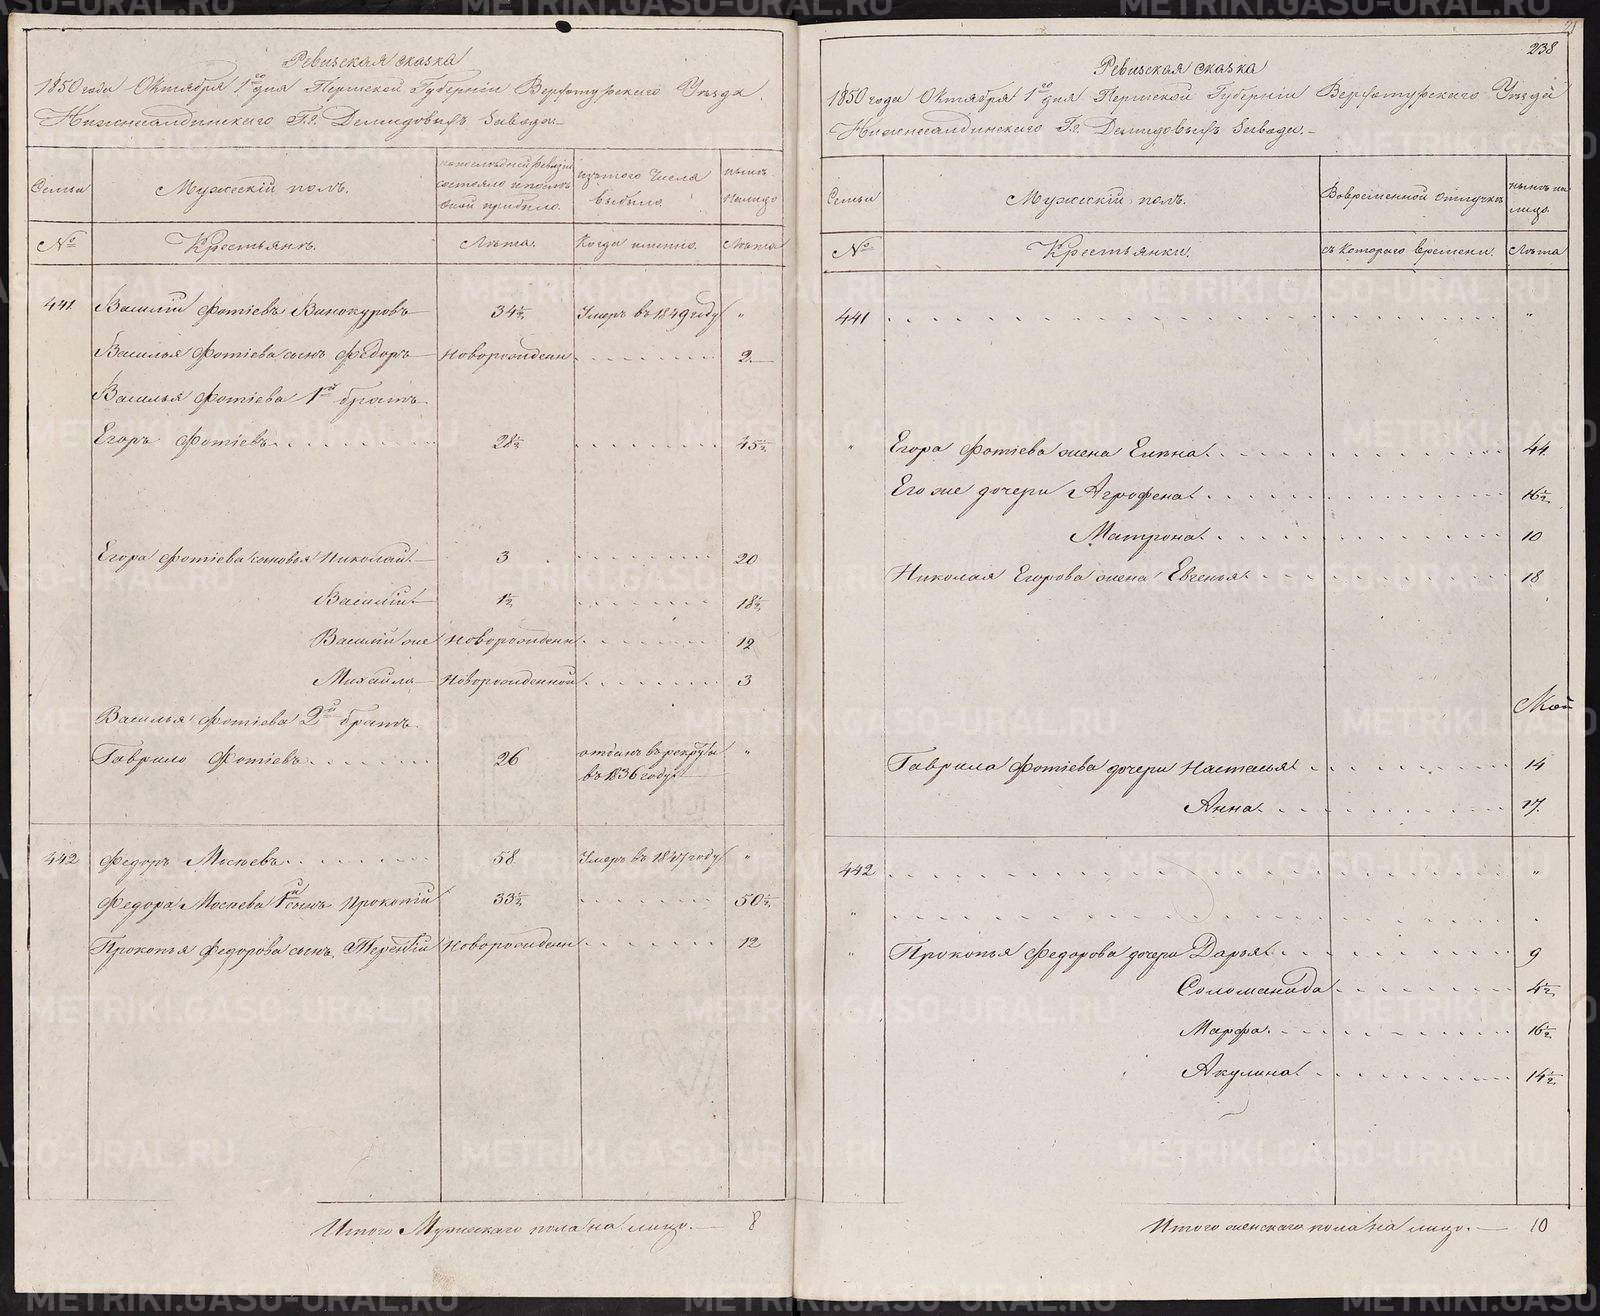 Ревизская сказка
1850 года Октября 1го дня Пермской Губерніи Верхотурского Уѣзда
Нижнесалдинского Г.г. Демидовыхъ Завода.
Семьи
Мужескій полъ.
по послѣдней ревизіи состояло и послѣ оной прибыло.
изъ того числа выбыло.
нынѣ на лицо
№
Крестьянъ.
Лѣта.
Когда именно.
Лѣта
441 Василій Фотіевъ Винокуровъ 34½ Умеръ въ 1849 году "
Василья Фотіева сынъ Федоръ Новорожденн 2
Василья Фотіева 1й братъ
Егоръ Фотіевъ 28½ 45½
Егора Фотіева сыновья Николай 3 20
Василій 1½ 18½
Василій же Новорожденн 12
Михайла Новорожденной 3
Василья Фотіева 2й братъ
Гаврило Фотіевъ 26 отданъ въ рекруты въ 1836 году "
442 Федоръ Мосѣевъ 58 Умеръ въ 1847 году "
Федора Мосѣева 1й сынъ Прокопій 33½ 50½
Прокопья Федорова сынъ Терентій Новорожденн 12
Итого Мужескаго пола на лицо. 8
238
Ревизская сказка
1850 года Октября 1го дня Пермской Губерніи Верхотурского Уѣзда
Нижнесалдинского Г.г. Демидовыхъ Завода.
Семьи
Мужескій полъ.
Во временной отлучкѣ
нынѣ на лицо.
№
Крестьянки.
съ котораго времени.
Лѣта
441 "
" Егора Фотіева жена Елена 44
Его же дочери Агрофена 16½
Матрона 10
Николая Егорова жена Евгенья 18
Гаврила Фотіева дочери Настасья 14
Анна 17
442 "
"
" Прокопья Федорова дочери Дарья 9
Соломанида 4½
Марфа 16½
Акулина 14½
Итого женскаго пола на лицо. 10
METRIKI.GASO-URAL.RU